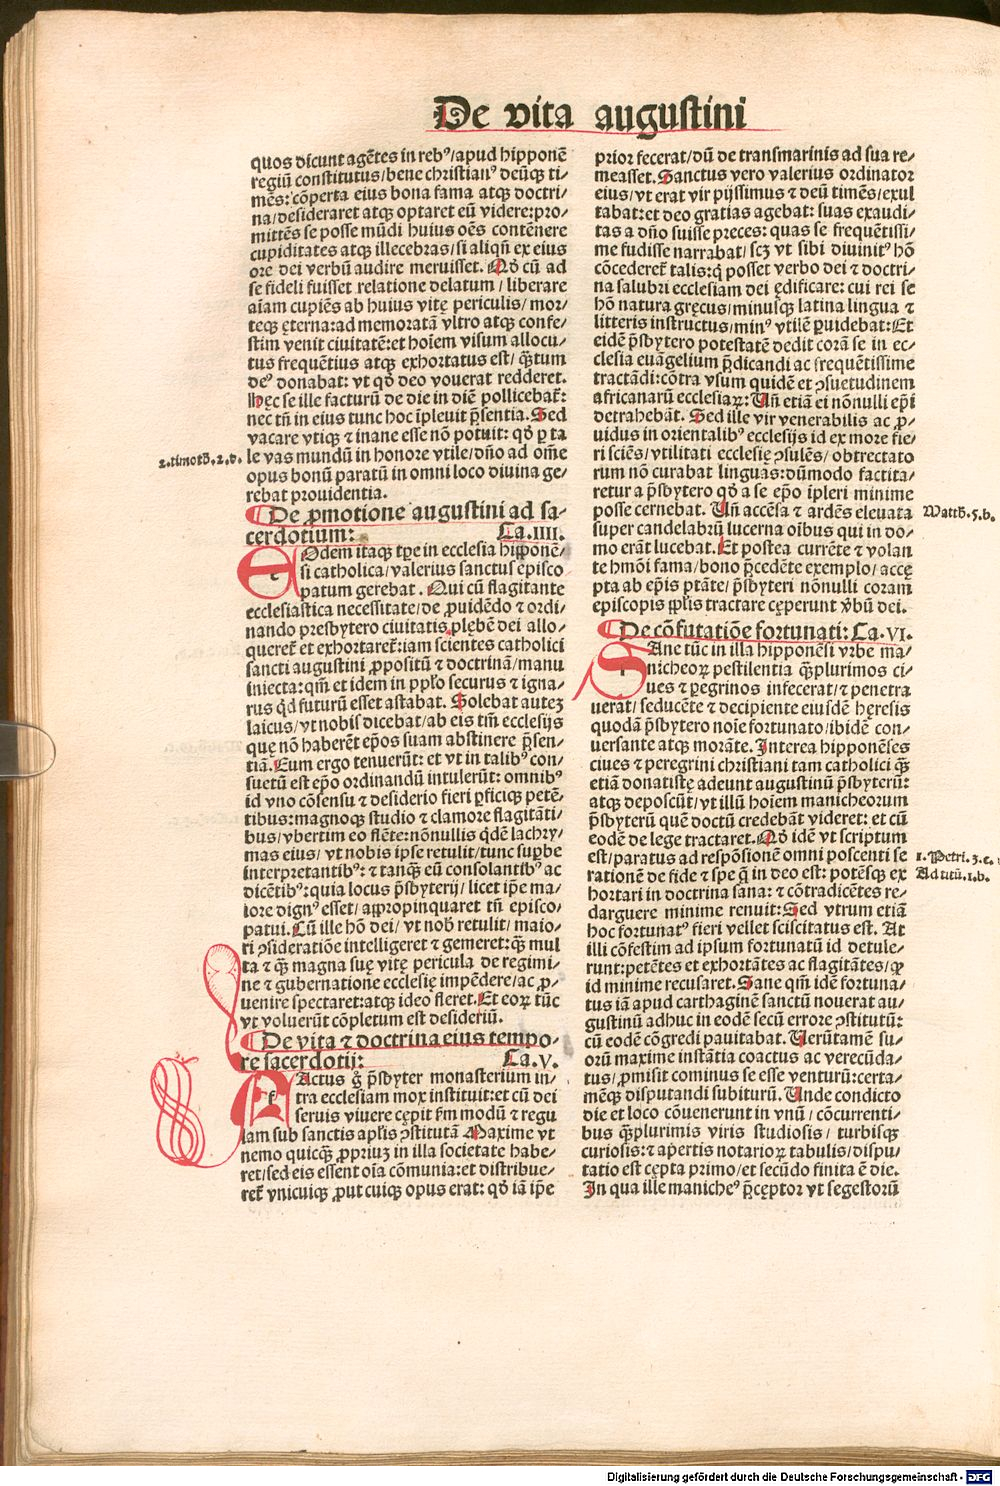 De vita augustini
quos dicunt agētes in reb⁹/apud hipponē
regiū constitutus/bene christian⁹ deūq̃ ti/
mēs: cōperta eius bona fama atq̃ doctri/
na/desideraret atq̃ optaret eū videre:pro/
mittēs se posse mūdi huius oēs contēnere
cupiditates atq̃ illecebras/si aliqñ ex eius
ore dei verbū audire meruisset. Qđ cū ad
se fideli fuisset relatione delatum/liberare
aīam cupiēs ab huius vitę periculis/mor/
teq̃ ęterna:ad memoratā vltro atq̃ confe/
stim venit ciuitatē:et hoīem visum allocu/
tus frequētius atq̃ exhortatus est/q̄tum
de⁹ donabat: vt qđ deo vouerat redderet.
Hęc se ille facturū de die in diē pollicebat̃:
nec tñ in eius tunc hoc īpleuit p̄sentia. Sed
vacare vtiq̃ ⁊ inane esse nō potuit: qđ ꝑ ta
le vas mundū in honore vtile/dño ad om̄e
opus bonū paratū in omni loco diuina ge/
rebat prouidentia.
2.timoth.2.d.
De ꝓmotione augustini ad sa/
cerdotium: Ca.IIII.
EOdem itaq̃ tꝑe in ecclesia hipponē/
si catholica/valerius sanctus episco
patum gerebat. Qui cū flagitante
ecclesiastica necessitate/de ꝓuidēdo ⁊ ordi/
nando presbytero ciuitatis plębē dei allo/
queret̃ et exhortaret̃:iam scientes catholici
sancti augustini ꝓpositū ⁊ doctrinā/manu
iniecta:qm̄ et idem in pp̄lo securus ⁊ igna/
rus qđ futurū esset astabat. Solebat autez
laicus/vt nobis dicebat/ab eis tm̄ ecclesijs
quę nō haberēt ep̄os suam abstinere p̄sen/
tiā. Eum ergo tenuerūt: et vt in talib⁹ con/
suetū est ep̄o ordinandū intulerūt: omnib⁹
id vno cōsensu ⁊ desiderio fieri ꝑficiq̃ petē/
tibus:magnoq̃ studio ⁊ clamore flagitāti/
bus/vbertim eo flēte:nōnullis qđē lachry/
mas eius/vt nobis ipse retulit/tunc suꝑbe
interpretantib⁹: ⁊ tanq̄ eū consolantib⁹ ac
dicētib⁹:quia locus p̄sbyterij/licet ip̄e ma/
iore dign⁹ esset/appropinquaret tñ episco/
patui. Cū ille hō dei/vt nob̄ retulit/maio/
ri ↄsideratiōe intelligeret ⁊ gemeret:q̄ mul
ta ⁊ q̄ magna suę vitę pericula de regimi/
ne ⁊ gubernatione ecclesię impēdere/ac ꝓ/
uenire spectaret:atq̃ ideo fleret. Et eoꝝ tūc
vt voluerūt cōpletum est desideriū.
De vita ⁊ doctrina eius tempo/
re sacerdotij: Ca.V.
FActus ḡ p̄sbyter monasterium in/
tra ecclesiam mox instituit:et cū dei
seruis viuere cępit ẜm modū ⁊ regu
lam sub sanctis apl̄is ↄstitutā Maxime vt
nemo quicq̄ ꝓpriuz in illa societate habe/
ret/sed eis essent oīa cōmunia:et distribue/
ret̃ vnicuiq̃ ꝓut cuiq̃ opus erat: qđ iā ip̄e
prior fecerat/dū de transmarinis ad sua re/
measset. Sanctus vero valerius ordinator
eius/vt erat vir pijssimus ⁊ deū timēs/exul
tabat:et deo gratias agebat: suas exaudi/
tas a dño fuisse preces: quas se frequētissi/
me fudisse narrabat/scz vt sibi diuinit⁹ hō
cōcederet̃ talis:q̇ posset verbo dei ⁊ doctri/
na salubri ecclesiam dei ędificare: cui rei se
hō natura gręcus/minusq̃ latina lingua ⁊
litteris instructus/min⁹ vtilē ꝓuidebat:Et
eidē p̄sbytero potestatē dedit corā se in ec/
clesia euāgelium p̄dicandi ac frequētissime
tractādi:cōtra vsum quidē et ↄsuetudinem
africanarū ecclesiaꝝ: Uñ etiā ei nōnulli ep̄i
detrahebāt. Sed ille vir venerabilis ac ꝓ/
uidus in orientalib⁹ ecclesijs id ex more fie/
ri sciēs/vtilitati ecclesię ↄsulēs/obtrectato
rum nō curabat linguas:dūmodo factita/
retur a p̄sbytero qđ a se ep̄o īpleri minime
posse cernebat. Uñ accēsa ⁊ ardēs eleuata
super candelabrū lucerna oībus qui in do/
mo erāt lucebat. Et postea currēte ⁊ volan
te hm̄oi fama/bono p̄cedēte exemplo/accę
pta ab ep̄is ptāte/p̄sbyteri nōnulli coram
episcopis pp̄lis tractare cęperunt v̄bū dei.
Matth.5.b.
De cōfutatiōe fortunati: Ca.VI.
SAne tūc in illa hipponēsi vrbe ma/
nicheoꝝ pestilentia q̄plurimos ci/
ues ⁊ ꝑegrinos infecerat/⁊ penetra
uerat/seducēte ⁊ decipiente eiusdē hęresis
quodā p̄sbytero noīe fortunato/ibidē con/
uersante atq̃ morāte. Interea hipponēses
ciues ⁊ peregrini christiani tam catholici q̄
etiā donatistę adeunt augustinū p̄sbyterū:
atq̃ deposcūt/vt illū hoīem manicheorum
p̄sbyterū quē doctū credebāt videret: et cū
eodē de lege tractaret. Qđ idē vt scriptum
est/paratus ad respōsionē omni poscenti se
rationē de fide ⁊ spe q̄ in deo est: potēsq̃ ex
hortari in doctrina sana: ⁊ cōtradicētes re/
darguere minime renuit: Sed vtrum etiā
hoc fortunat⁹ fieri vellet sciscitatus est. At
illi cōfestim ad ipsum fortunatū id detule/
runt:petētes et exhortātes ac flagitātes/ꝙ
id minime recusaret. Sane qm̄ idē fortuna/
tus iā apud carthaginē sanctū nouerat au/
gustinū adhuc in eodē secū errore ↄstitutū:
cū eodē cōgredi pauitabat. Uerūtamē su/
orū maxime instātia coactus ac verecūda/
tus/ꝓmisit cominus se esse venturū:certa/
mēq̃ disputandi subiturū. Unde condicto
die et loco cōuenerunt in vnū/cōcurrenti/
bus q̄plurimis viris studiosis/turbisq̃
curiosis: ⁊ aꝑertis notarioꝝ tabulis/dispu/
tatio est cępta primo/et secūdo finita ē die.
In qua ille maniche⁹ p̄ceptor vt segestorū
1.Petri.3.c.
Ad titū.1.b.
Digitalisierung gefördert durch die Deutsche Forschungsgemeinschaft - DFG